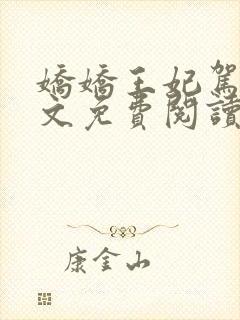 嬌嬌王妃駕
文免費閱讀
康金山